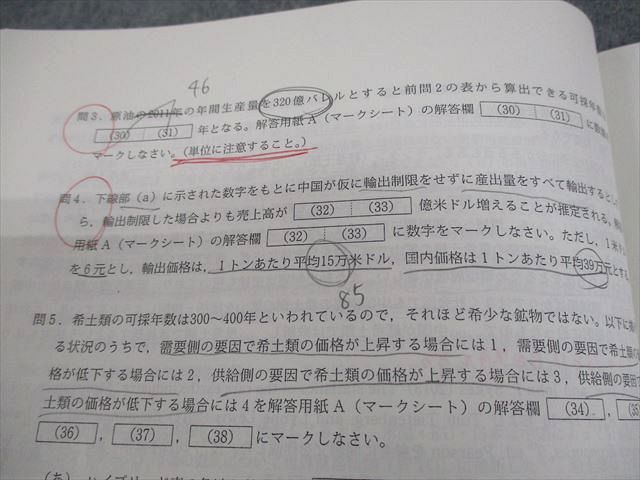 46
問3．原油の2011年の年間生産量を320億バレルとすると前問2の表から算出できる可採年数
(30) (31) 年となる。解答用紙A（マークシート）の解答欄 (30) (31) に
マークしなさい。（単位に注意すること。）
問4．下線部（a）に示された数字をもとに中国が仮に輸出制限をせずに産出量をすべて輸出すると
ら，輸出制限した場合よりも売上高が (32) (33) 億米ドル増えることが推定される。
用紙A（マークシート）の解答欄 (32) (33) に数字をマークしなさい。ただし，1米
を6元とし，輸出価格は，1トンあたり平均15万米ドル，国内価格は1トンあたり平均39万元とす
85
問5．希土類の可採年数は300～400年といわれているので，それほど希少な鉱物ではない。以下に
る状況のうちで，需要側の要因で希土類の価格が上昇する場合には1，需要側の要因で希
格が低下する場合には2，供給側の要因で希土類の価格が上昇する場合には3，供給側の要因
土類の価格が低下する場合には4を解答用紙A（マークシート）の解答欄 (34)，(35
(36)，(37)，(38) にマークしなさい。